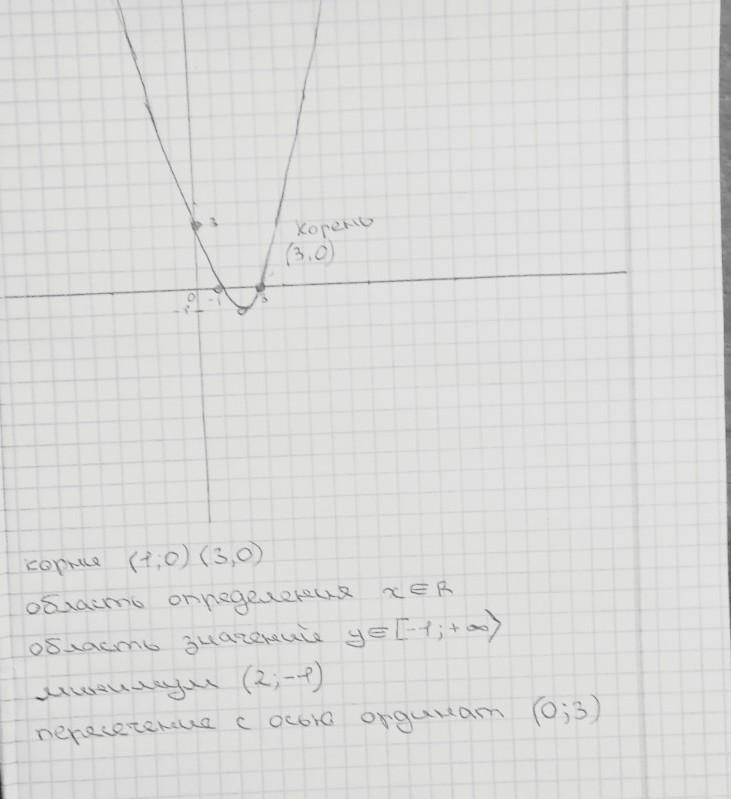 3
корень
(3,0)
0 -1 3
-1
корни (1;0) (3,0)
область определения x ∈ R
область значений y ∈ [-1; +∞)
минимум (2;-1)
пересечение с осью ординат (0;3)